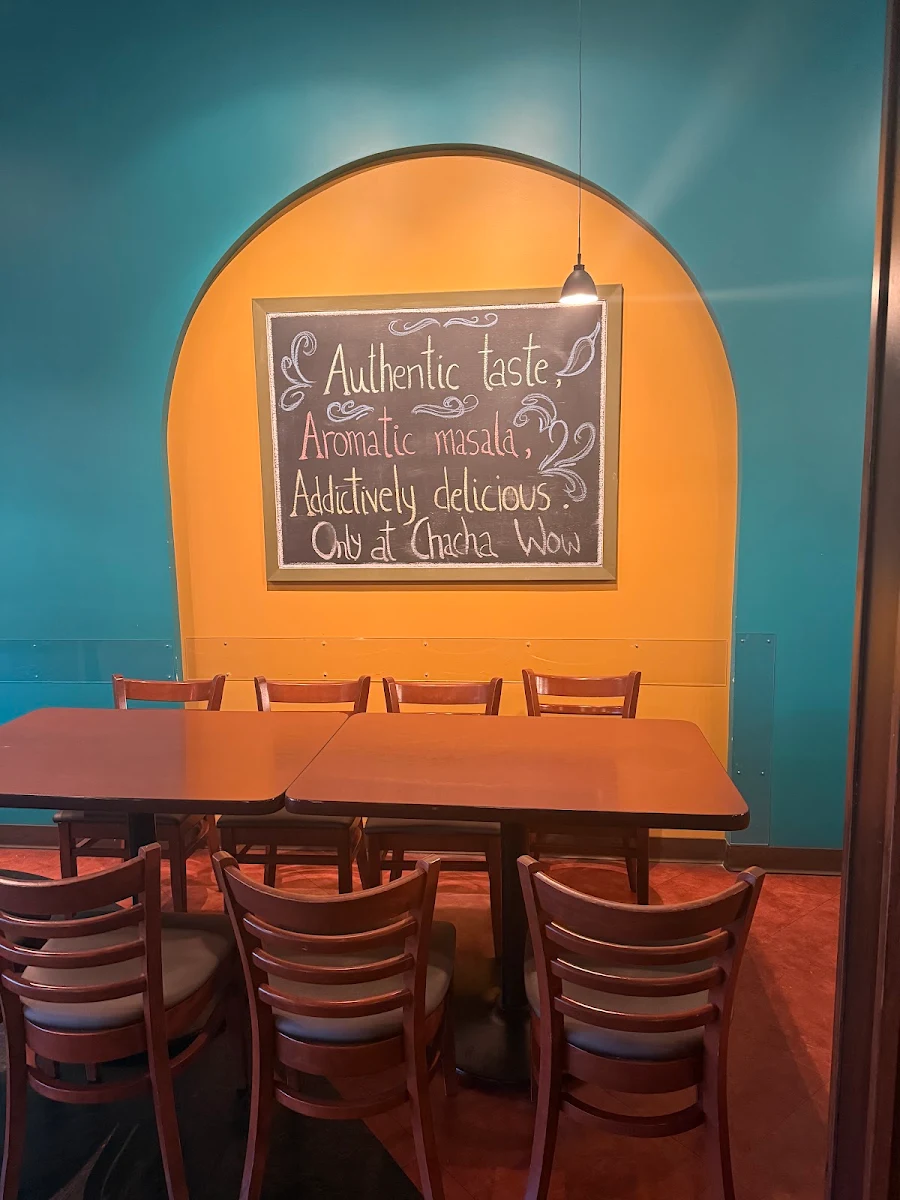 Authentic taste,
Aromatic masala,
Addictively delicious.
Only at Chacha Wow